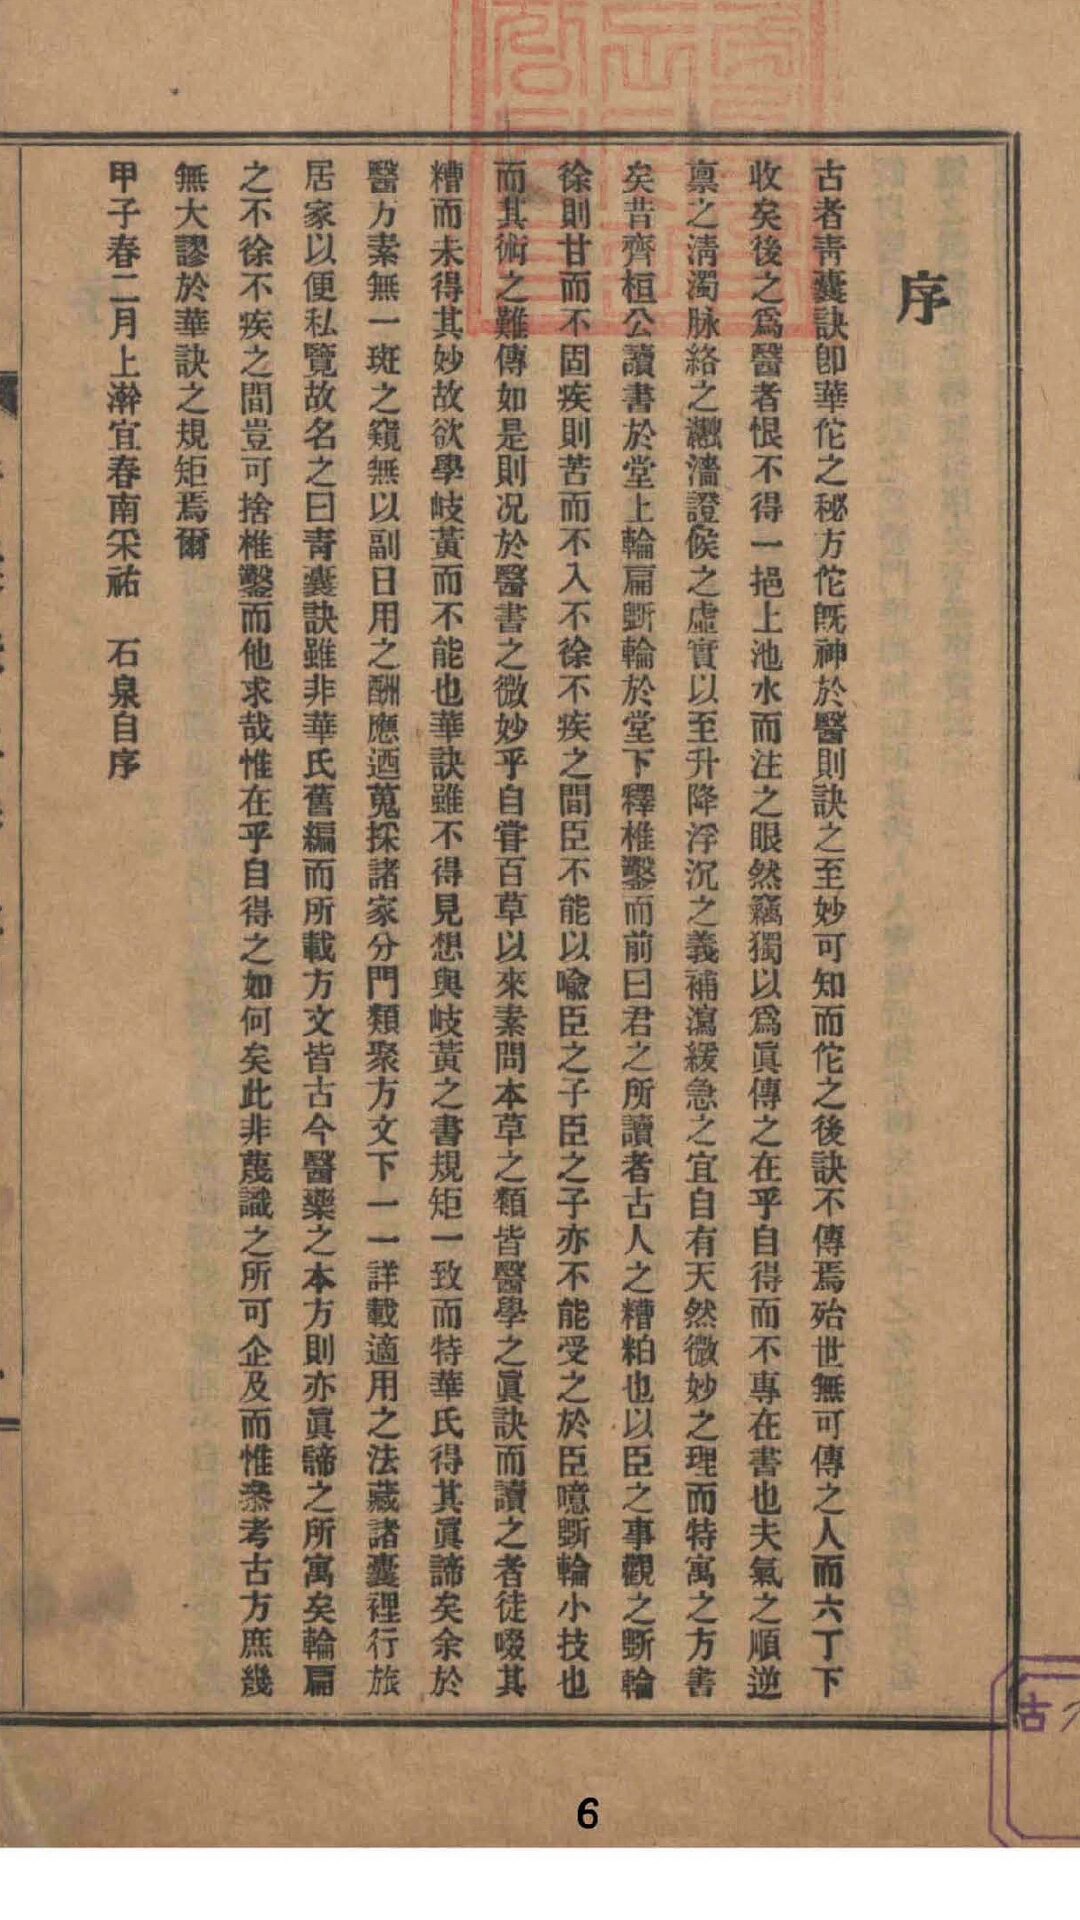 序
古者靑囊訣卽華佗之秘方佗旣神於醫則訣之至妙可知而佗之後訣不傳焉殆世無可傳之人而六丁下
收矣後之爲醫者恨不得一挹上池水而注之眼然竊獨以爲眞傳之在乎自得而不專在書也夫氣之順逆
稟之淸濁脉絡之瀜濇證候之虛實以至升降浮沉之義補瀉緩急之宜自有天然微妙之理而特寓之方書
矣昔齊桓公讀書於堂上輪扁斲輪於堂下釋椎鑿而前曰君之所讀者古人之糟粕也以臣之事觀之斲輪
徐則甘而不固疾則苦而不入不徐不疾之間臣不能以喩臣之子臣之子亦不能受之於臣噫斲輪小技也
而其術之難傳如是則况於醫書之微妙乎自嘗百草以來素問本草之類皆醫學之眞訣而讀之者徒啜其
糟而未得其妙故欲學岐黃而不能也華訣雖不得見想與岐黃之書規矩一致而特華氏得其眞諦矣余於
醫方素無一斑之窺無以副日用之酬應迺蒐採諸家分門類聚方文下一一詳載適用之法藏諸囊裡行旅
居家以便私覽故名之曰靑囊訣雖非華氏舊編而所載方文皆古今醫藥之本方則亦眞諦之所寓矣輪扁
之不徐不疾之間豈可捨椎鑿而他求哉惟在乎自得之如何矣此非蔑識之所可企及而惟叅考古方庶幾
無大謬於華訣之規矩焉爾
甲子春二月上澣宜春南采祐 石泉自序
古
6